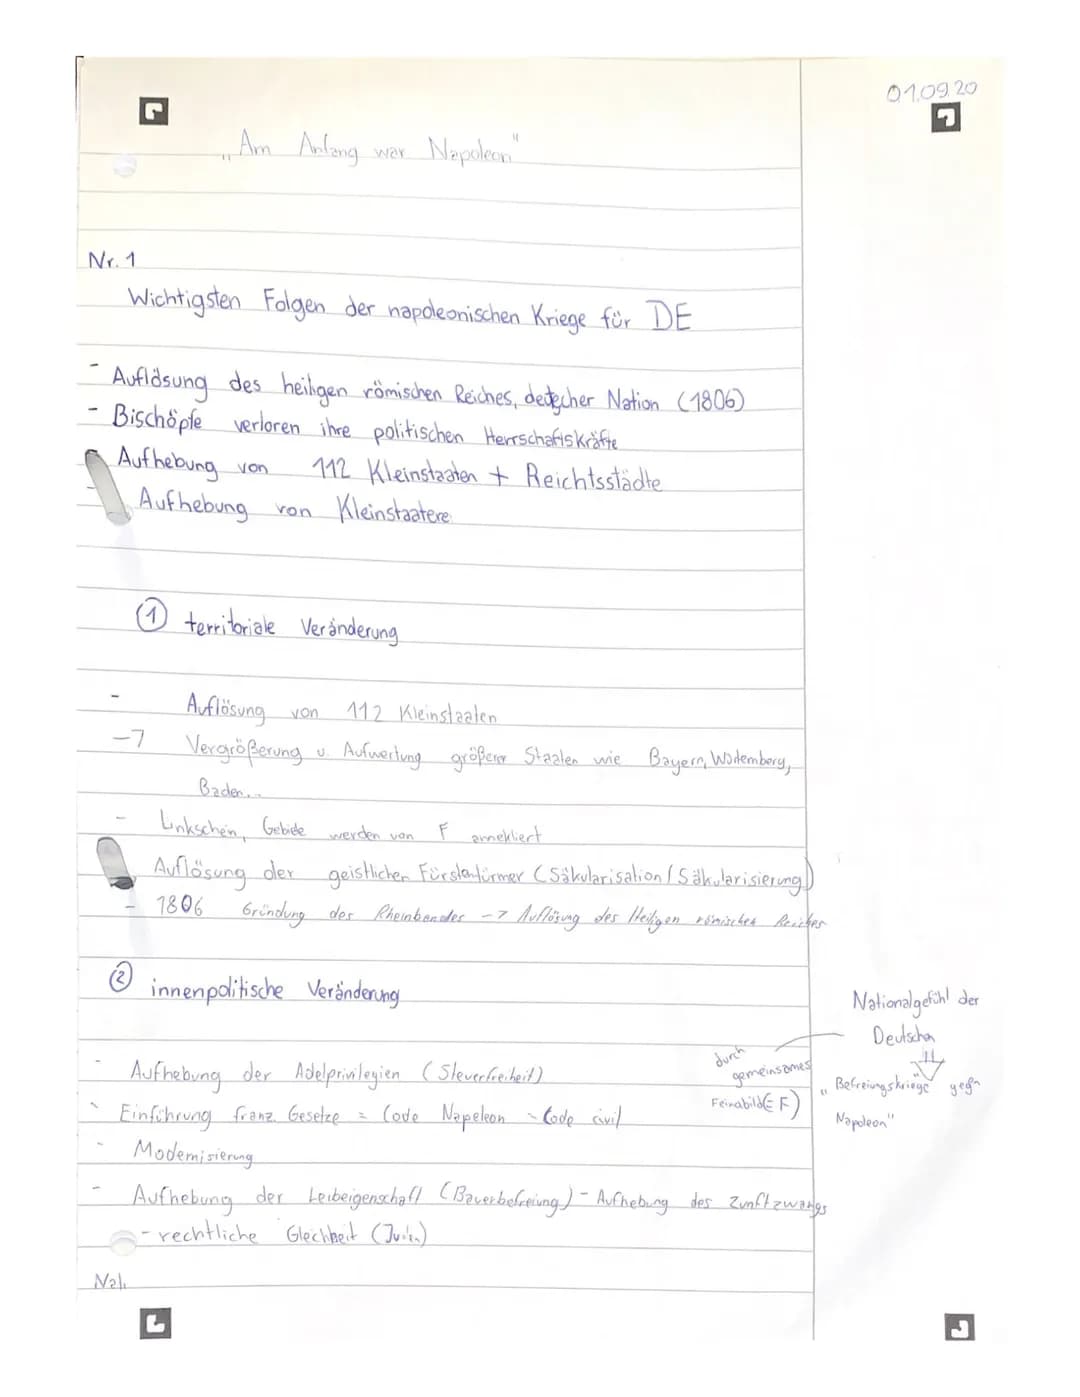 01.09.20
„Am Anfang war Napoleon"
Nr. 1
Wichtigsten Folgen der napoleonischen Kriege für DE
- Auflösung des heiligen römischen Reiches, deutscher Nation (1806)
- Bischöpfe verloren ihre politischen Herrschaftskräfte
Aufhebung von 112 Kleinstaaten + Reichtsstädte
Aufhebung von Kleinstaatere
① territoriale Veränderung
- Auflösung von 112 Kleinstaaten
-7 Vergrößerung u. Aufwertung größerer Staaten wie Bayern, Würtemberg,
Baden...
- Linkschein, Gebiete werden von F annektiert
Auflösung der geistlichen Fürstentürmer (Säkularisation / Säkularisierung)
- 1806 Gründung des Rheinbundes -7 Auflösung des Heiligen römischen Reiches
② innenpolitische Veränderung
- Aufhebung der Adelprivilegien (Steuerfreiheit)
- Einführung franz. Gesetze = Code Napoleon - Code civil
- Modernisierung
- Aufhebung der Leibeigenschaft (Bauerbefreiung) - Aufhebung des Zunftzwangs
- rechtliche Gleichheit (Juden)
Nationalgefühl der
Deutschen
durch
gemeinsames
Feinabild (= F)
"Befreiungskriege gegn
Napoleon"